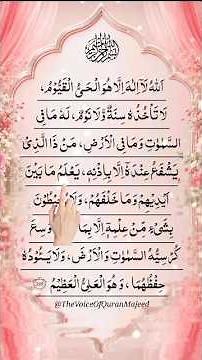 اَللّٰهُ لَآ اِلٰهَ اِلَّا هُوَ الْحَیُّ الْقَیُّوْمُ،
لَا تَاْخُذُهٗ سِنَةٌ وَّلَا نَوْمٌ، لَهٗ مَا فِی
السَّمٰوٰتِ وَمَا فِی الْاَرْضِ، مَنْ ذَا الَّذِیْ
یَشْفَعُ عِنْدَهٗٓ اِلَّا بِاِذْنِهٖ، یَعْلَمُ مَا بَیْنَ
اَیْدِیْهِمْ وَمَا خَلْفَهُمْ، وَلَا یُحِیْطُوْنَ
بِشَیْءٍ مِّنْ عِلْمِهٖٓ اِلَّا بِمَا وَسِعَ
كُرْسِیُّهُ السَّمٰوٰتِ وَالْاَرْضَ، وَلَا یَـُٔوْدُهٗ
حِفْظُهُمَا، وَهُوَ الْعَلِیُّ الْعَظِیْمُ
@TheVoiceOfQuranMajeed